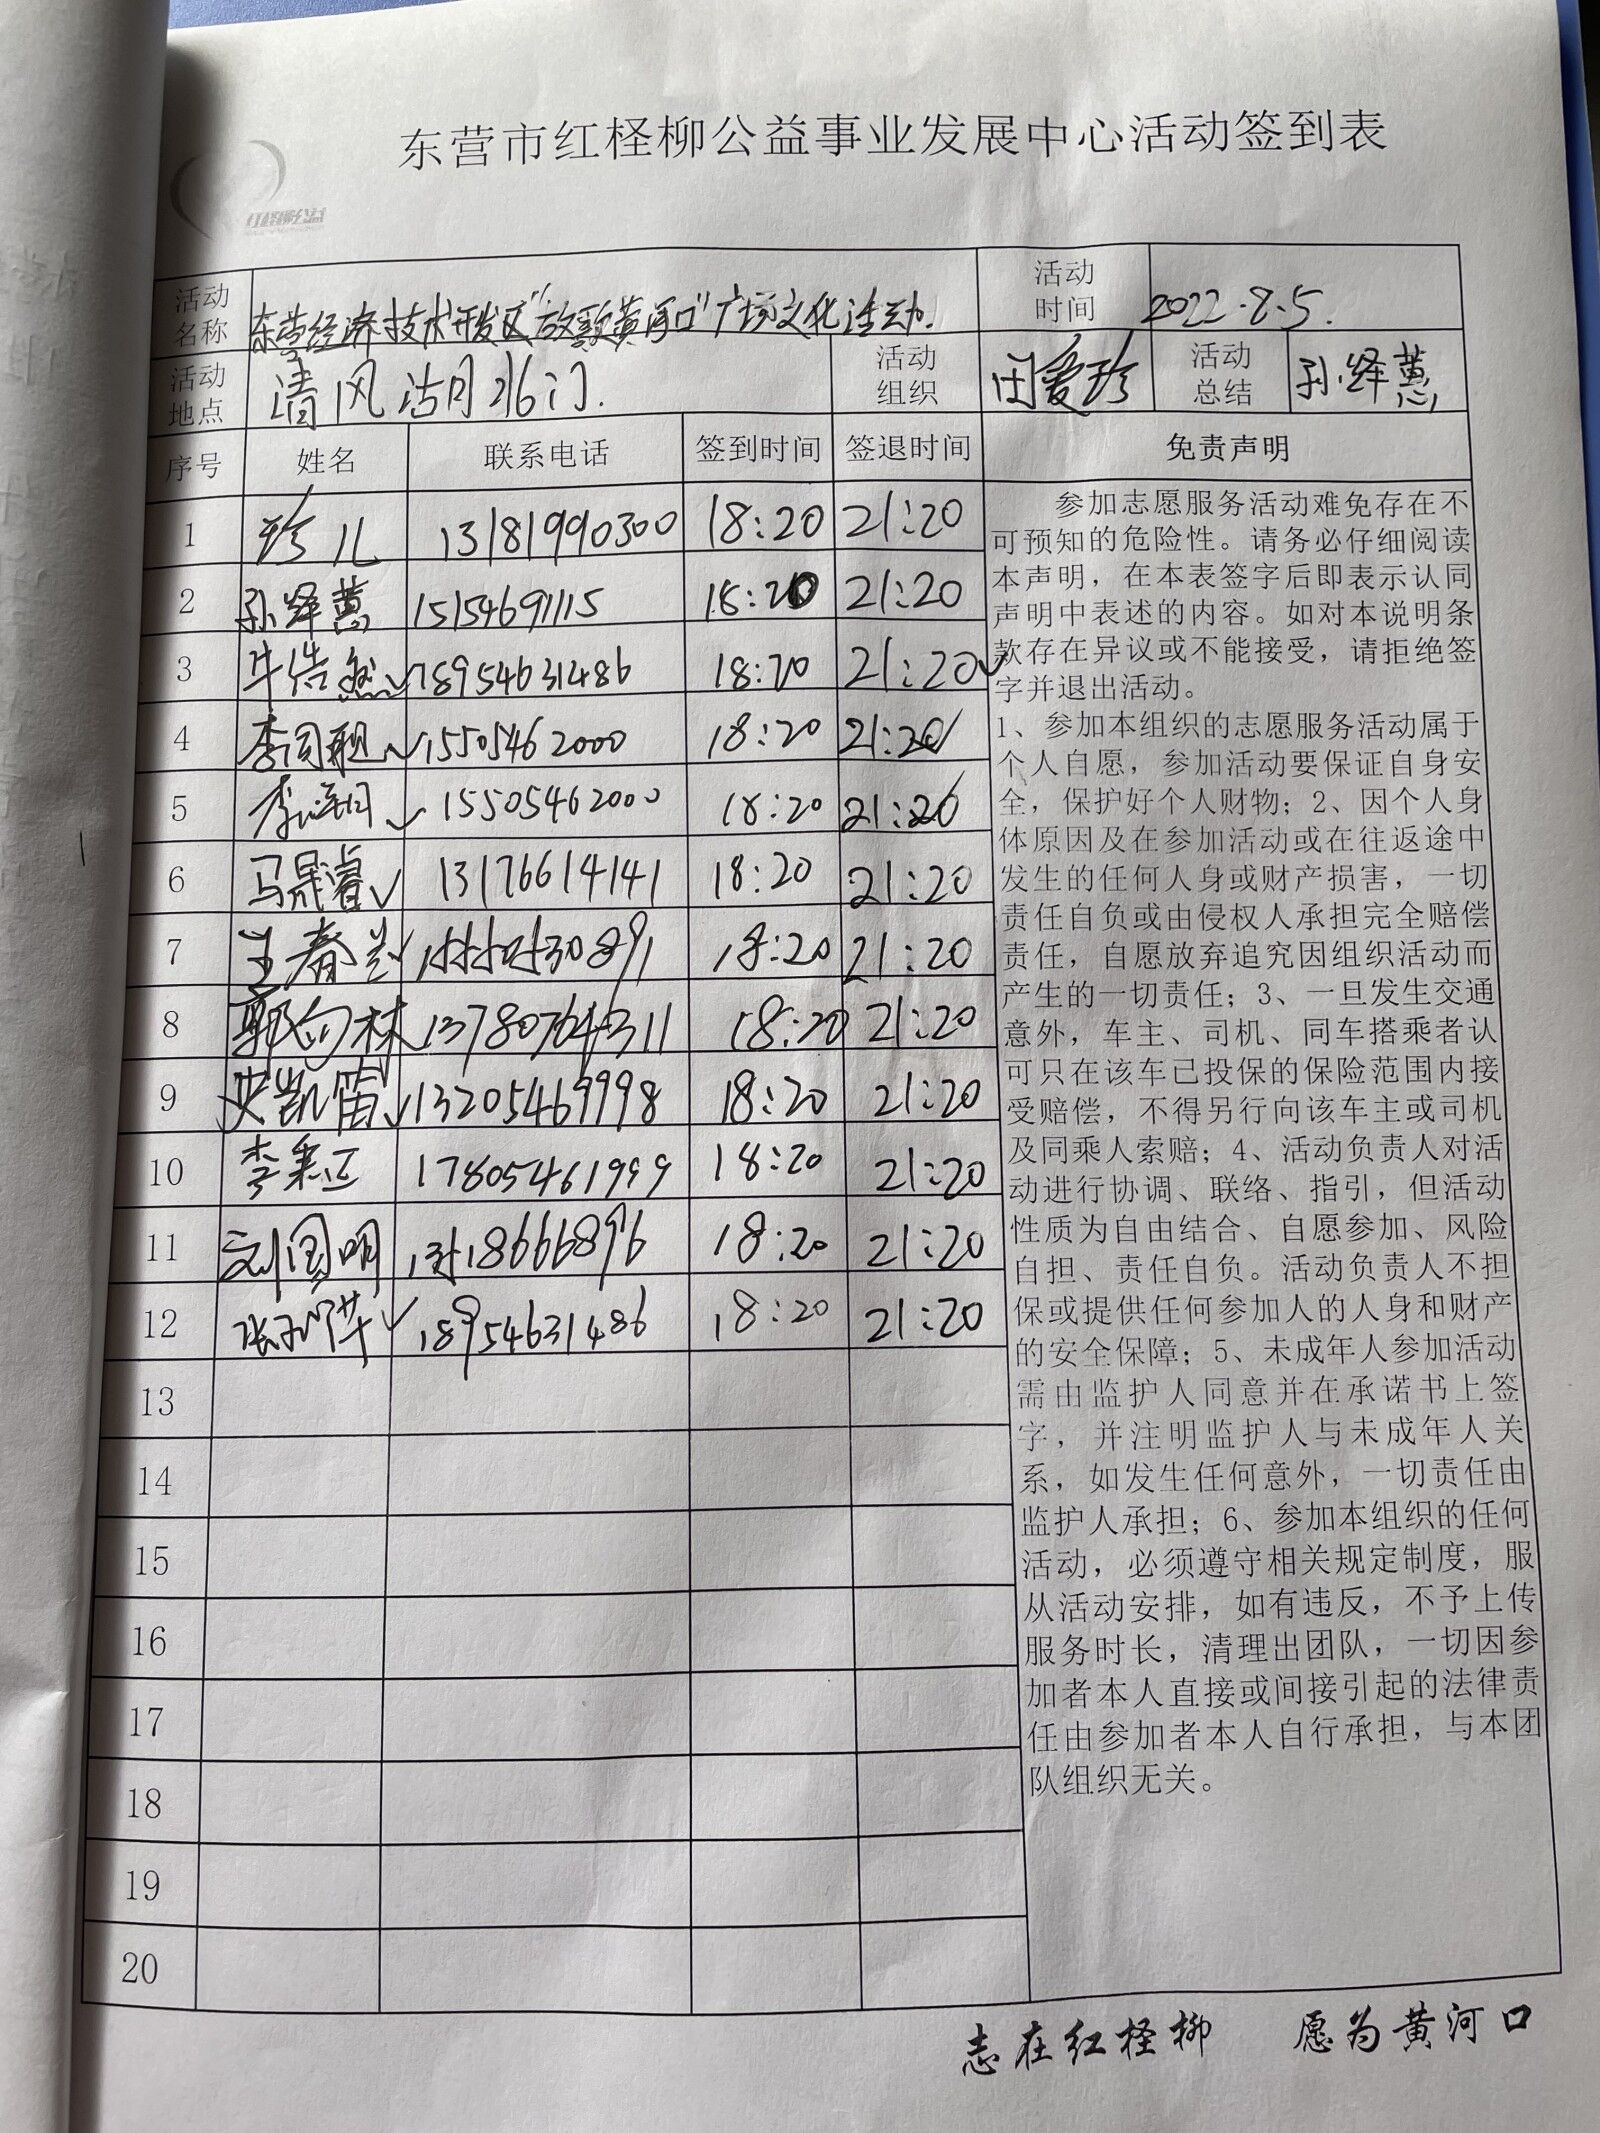 东营市红柽柳公益事业发展中心活动签到表
红柽柳公益
活动名称 东营经济技术开发区"放歌黄河口"广场文化活动. 活动时间 2022.8.5.
活动地点 清风湖水门. 活动组织 田爱珍 活动总结 孙绎蕙
序号 姓名 联系电话 签到时间 签退时间 免责声明
1 珍儿 13181990300 18:20 21:20
2 孙绎蕙 15154691115 18:20 21:20
3 牛浩然 18954631486 18:20 21:20
4 李 15505462000 18:20 21:20
5 李 15505462000 18:20 21:20
6 马晟睿 13176614141 18:20 21:20
7 王春兰 18:20 21:20
8 郭向林 13780764311 18:20 21:20
9 史凯笛 13205469998 18:20 21:20
10 李 17805461999 18:20 21:20
11 刘国明 18:20 21:20
12 张 18954631486 18:20 21:20
13
14
15
16
17
18
19
20
参加志愿服务活动难免存在不
可预知的危险性。请务必仔细阅读
本声明，在本表签字后即表示认同
声明中表述的内容。如对本说明条
款存在异议或不能接受，请拒绝签
字并退出活动。
1、参加本组织的志愿服务活动属于
个人自愿，参加活动要保证自身安
全，保护好个人财物；2、因个人身
体原因及在参加活动或在往返途中
发生的任何人身或财产损害，一切
责任自负或由侵权人承担完全赔偿
责任，自愿放弃追究因组织活动而
产生的一切责任；3、一旦发生交通
意外，车主、司机、同车搭乘者认
可只在该车已投保的保险范围内接
受赔偿，不得另行向该车主或司机
及同乘人索赔；4、活动负责人对活
动进行协调、联络、指引，但活动
性质为自由结合、自愿参加、风险
自担、责任自负。活动负责人不担
保或提供任何参加人的人身和财产
的安全保障；5、未成年人参加活动
需由监护人同意并在承诺书上签
字，并注明监护人与未成年人关
系，如发生任何意外，一切责任由
监护人承担；6、参加本组织的任何
活动，必须遵守相关规定制度，服
从活动安排，如有违反，不予上传
服务时长，清理出团队，一切因参
加者本人直接或间接引起的法律责
任由参加者本人自行承担，与本团
队组织无关。
志在红柽柳 愿为黄河口